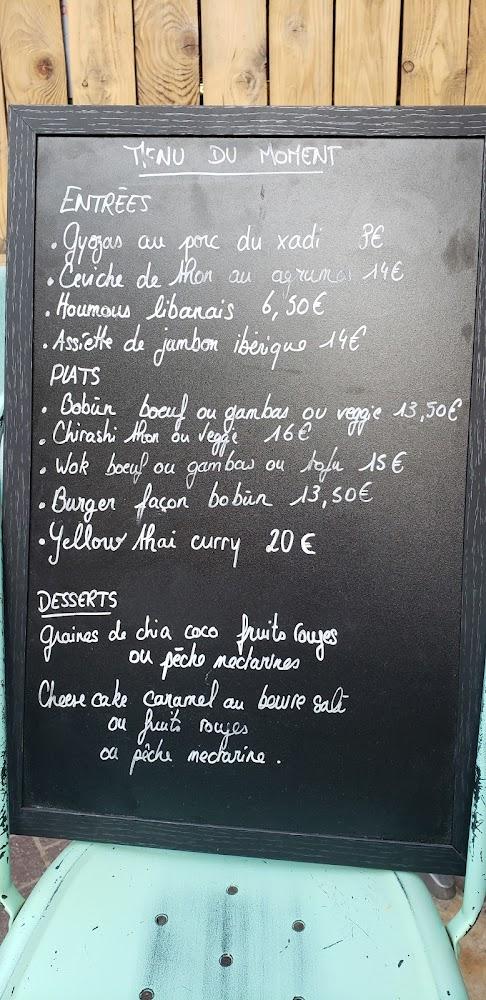 MENU DU MOMENT
ENTRÉES
• Gyozas au porc du xadi 9€
• Ceviche de thon au agrumes 14€
• Houmous libanais 6,50€
• Assiette de jambon ibérique 14€
PLATS
• Bobùn boeuf ou gambas ou veggie 13,50€
• Chirashi thon ou veggie 16€
• Wok boeuf ou gambas ou tofu 15€
• Burger façon bobùn 13,50€
• Yellow thai curry 20€
DESSERTS
graines de chia coco fruits rouges
ou pêche nectarines
Cheese cake caramel au beurre salé
ou fruits rouges
ou pêche nectarine.